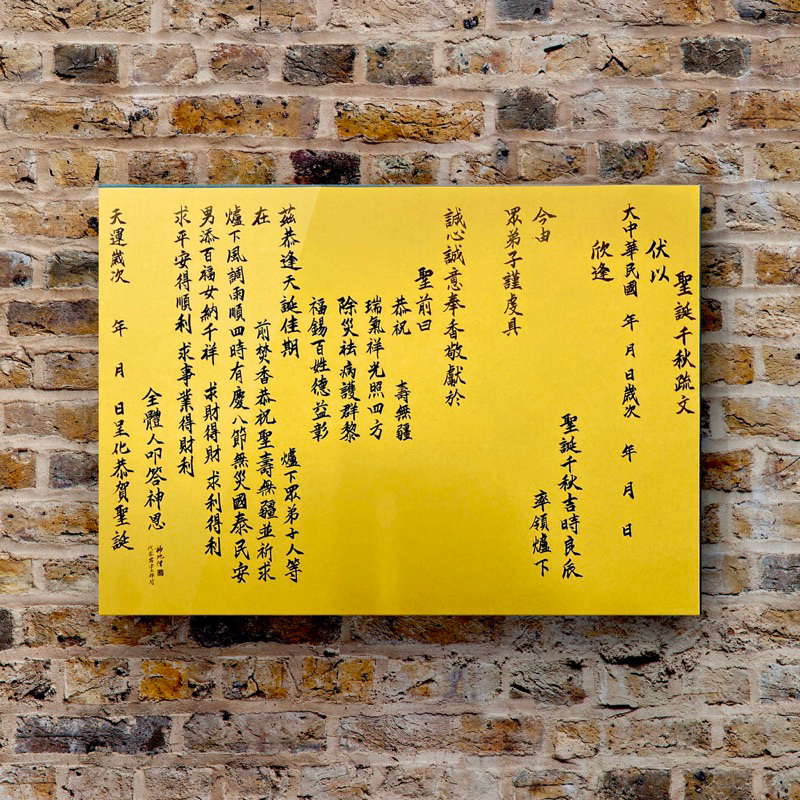 聖誕千秋疏文
伏以
大中華民國 年 月 日歲次 年 月 日
欣逢
聖誕千秋吉時良辰
今由 率領爐下
眾弟子謹虔具
誠心誠意奉香敬獻於
聖前曰
恭祝 壽無疆
瑞氣祥光照四方
除災祛病護群黎
福錫百姓德益彰
茲恭逢天誕佳期 爐下眾弟子人等
在 前焚香恭祝聖壽無疆並祈求
爐下風調雨順四時有慶八節無災國泰民安
男添百福女納千祥 求財得財 求利得利
求平安得順利 求事業得財利
全體人叩答神恩
天運歲次 年 月 日呈化恭賀聖誕